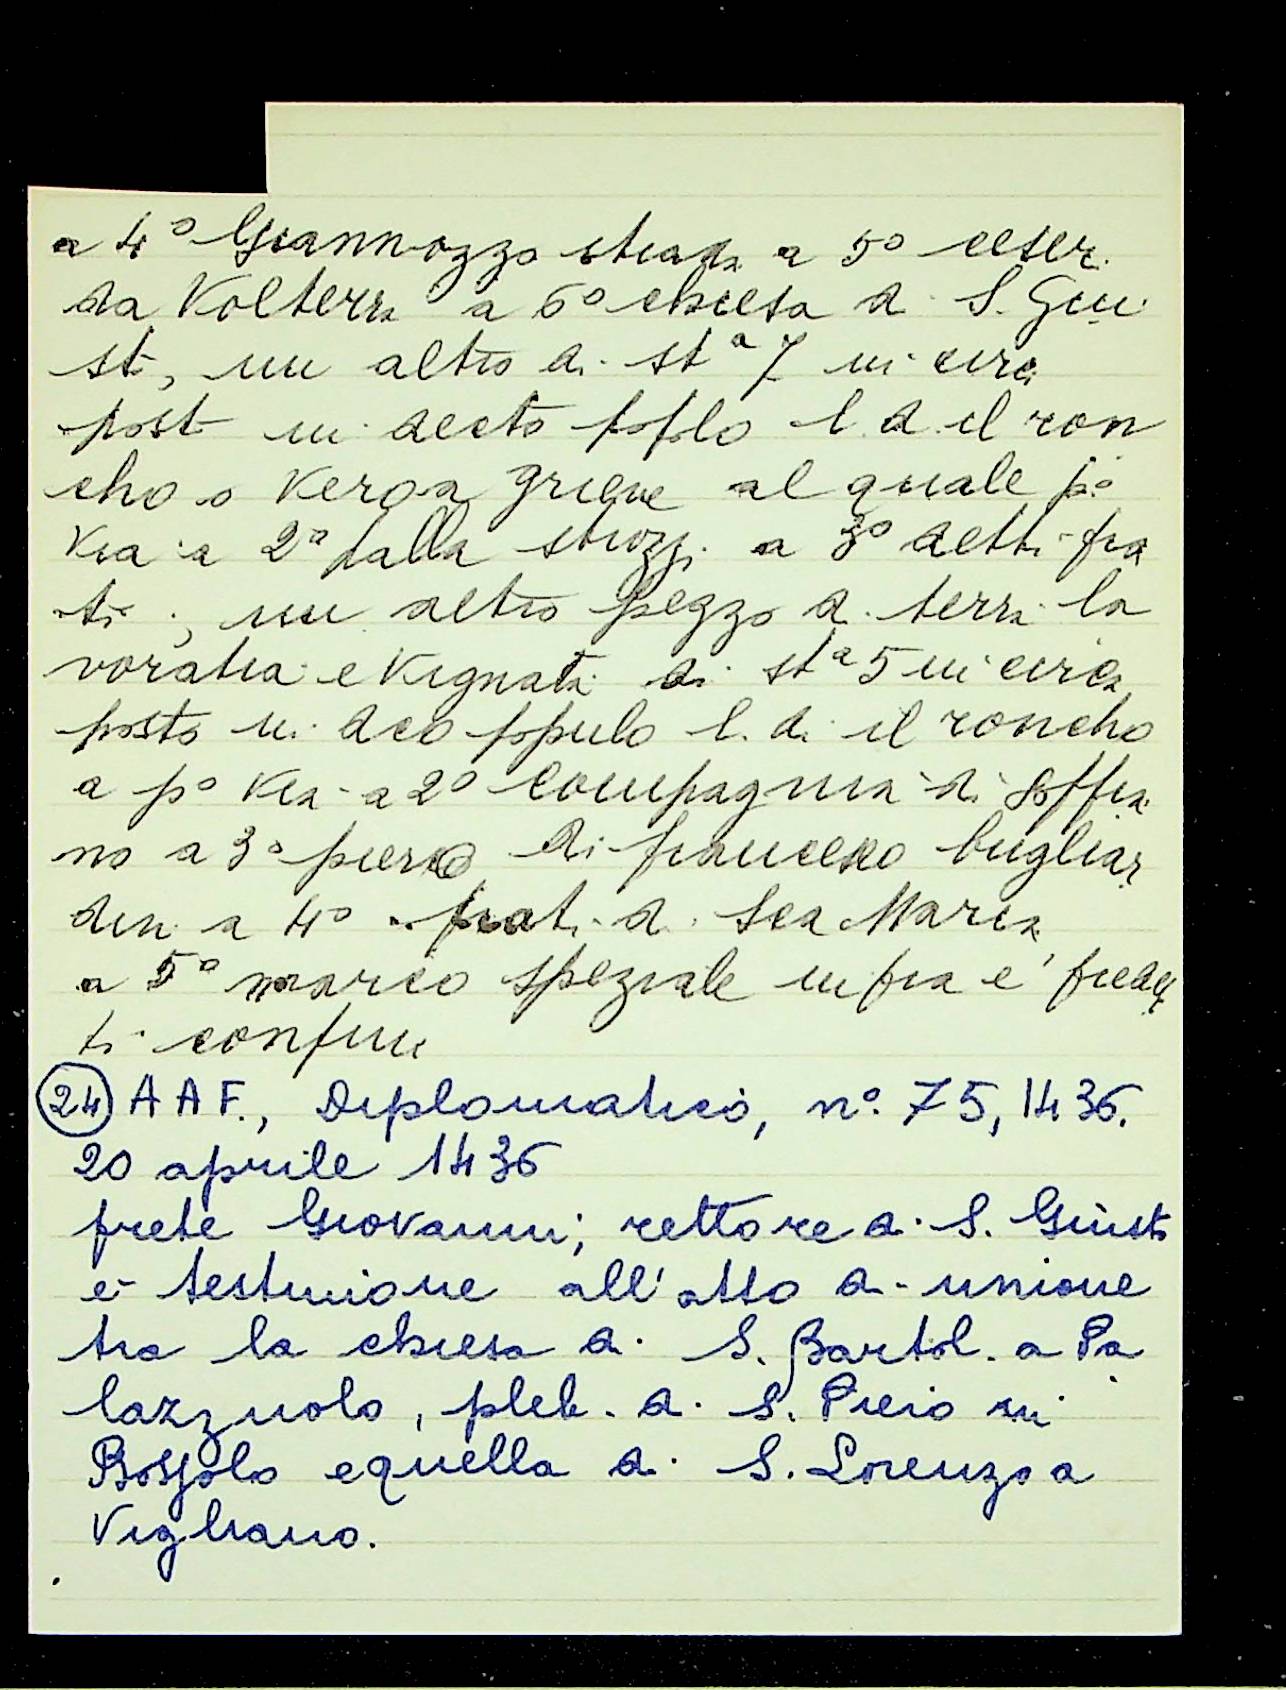 a 4° Giannozzo strada a 5° ceser.
da Volterra a 6° chiesa di S. Giu
sto, un altro di stª 7 in circa
posto in decto popolo l. d. il ron
cho o vero a grieve al quale p°
via a 2° palla strozzi a 3° detti fra
ti, un altro pezzo di terra la
voratia e vignata di stª 5 in circa
posto in dco populo l. d. il roncho
a p° via a 2° compagnia di soffia
no a 3° piero di francesco bugliar
dini a 4° frati di Sca Maria
a 5° marco speziale infra e' predet
ti confini
(24) A A F., Diplomatico, n°. 75, 1436.
20 aprile 1436
prete Giovanni, rettore di S. Giusto
è testimone all'atto di unione
tra la chiesa di S. Bartol. a Pa
lazzuolo, pleb. di S. Piero in
Bossolo e quella di S. Lorenzo a
Vigliano.